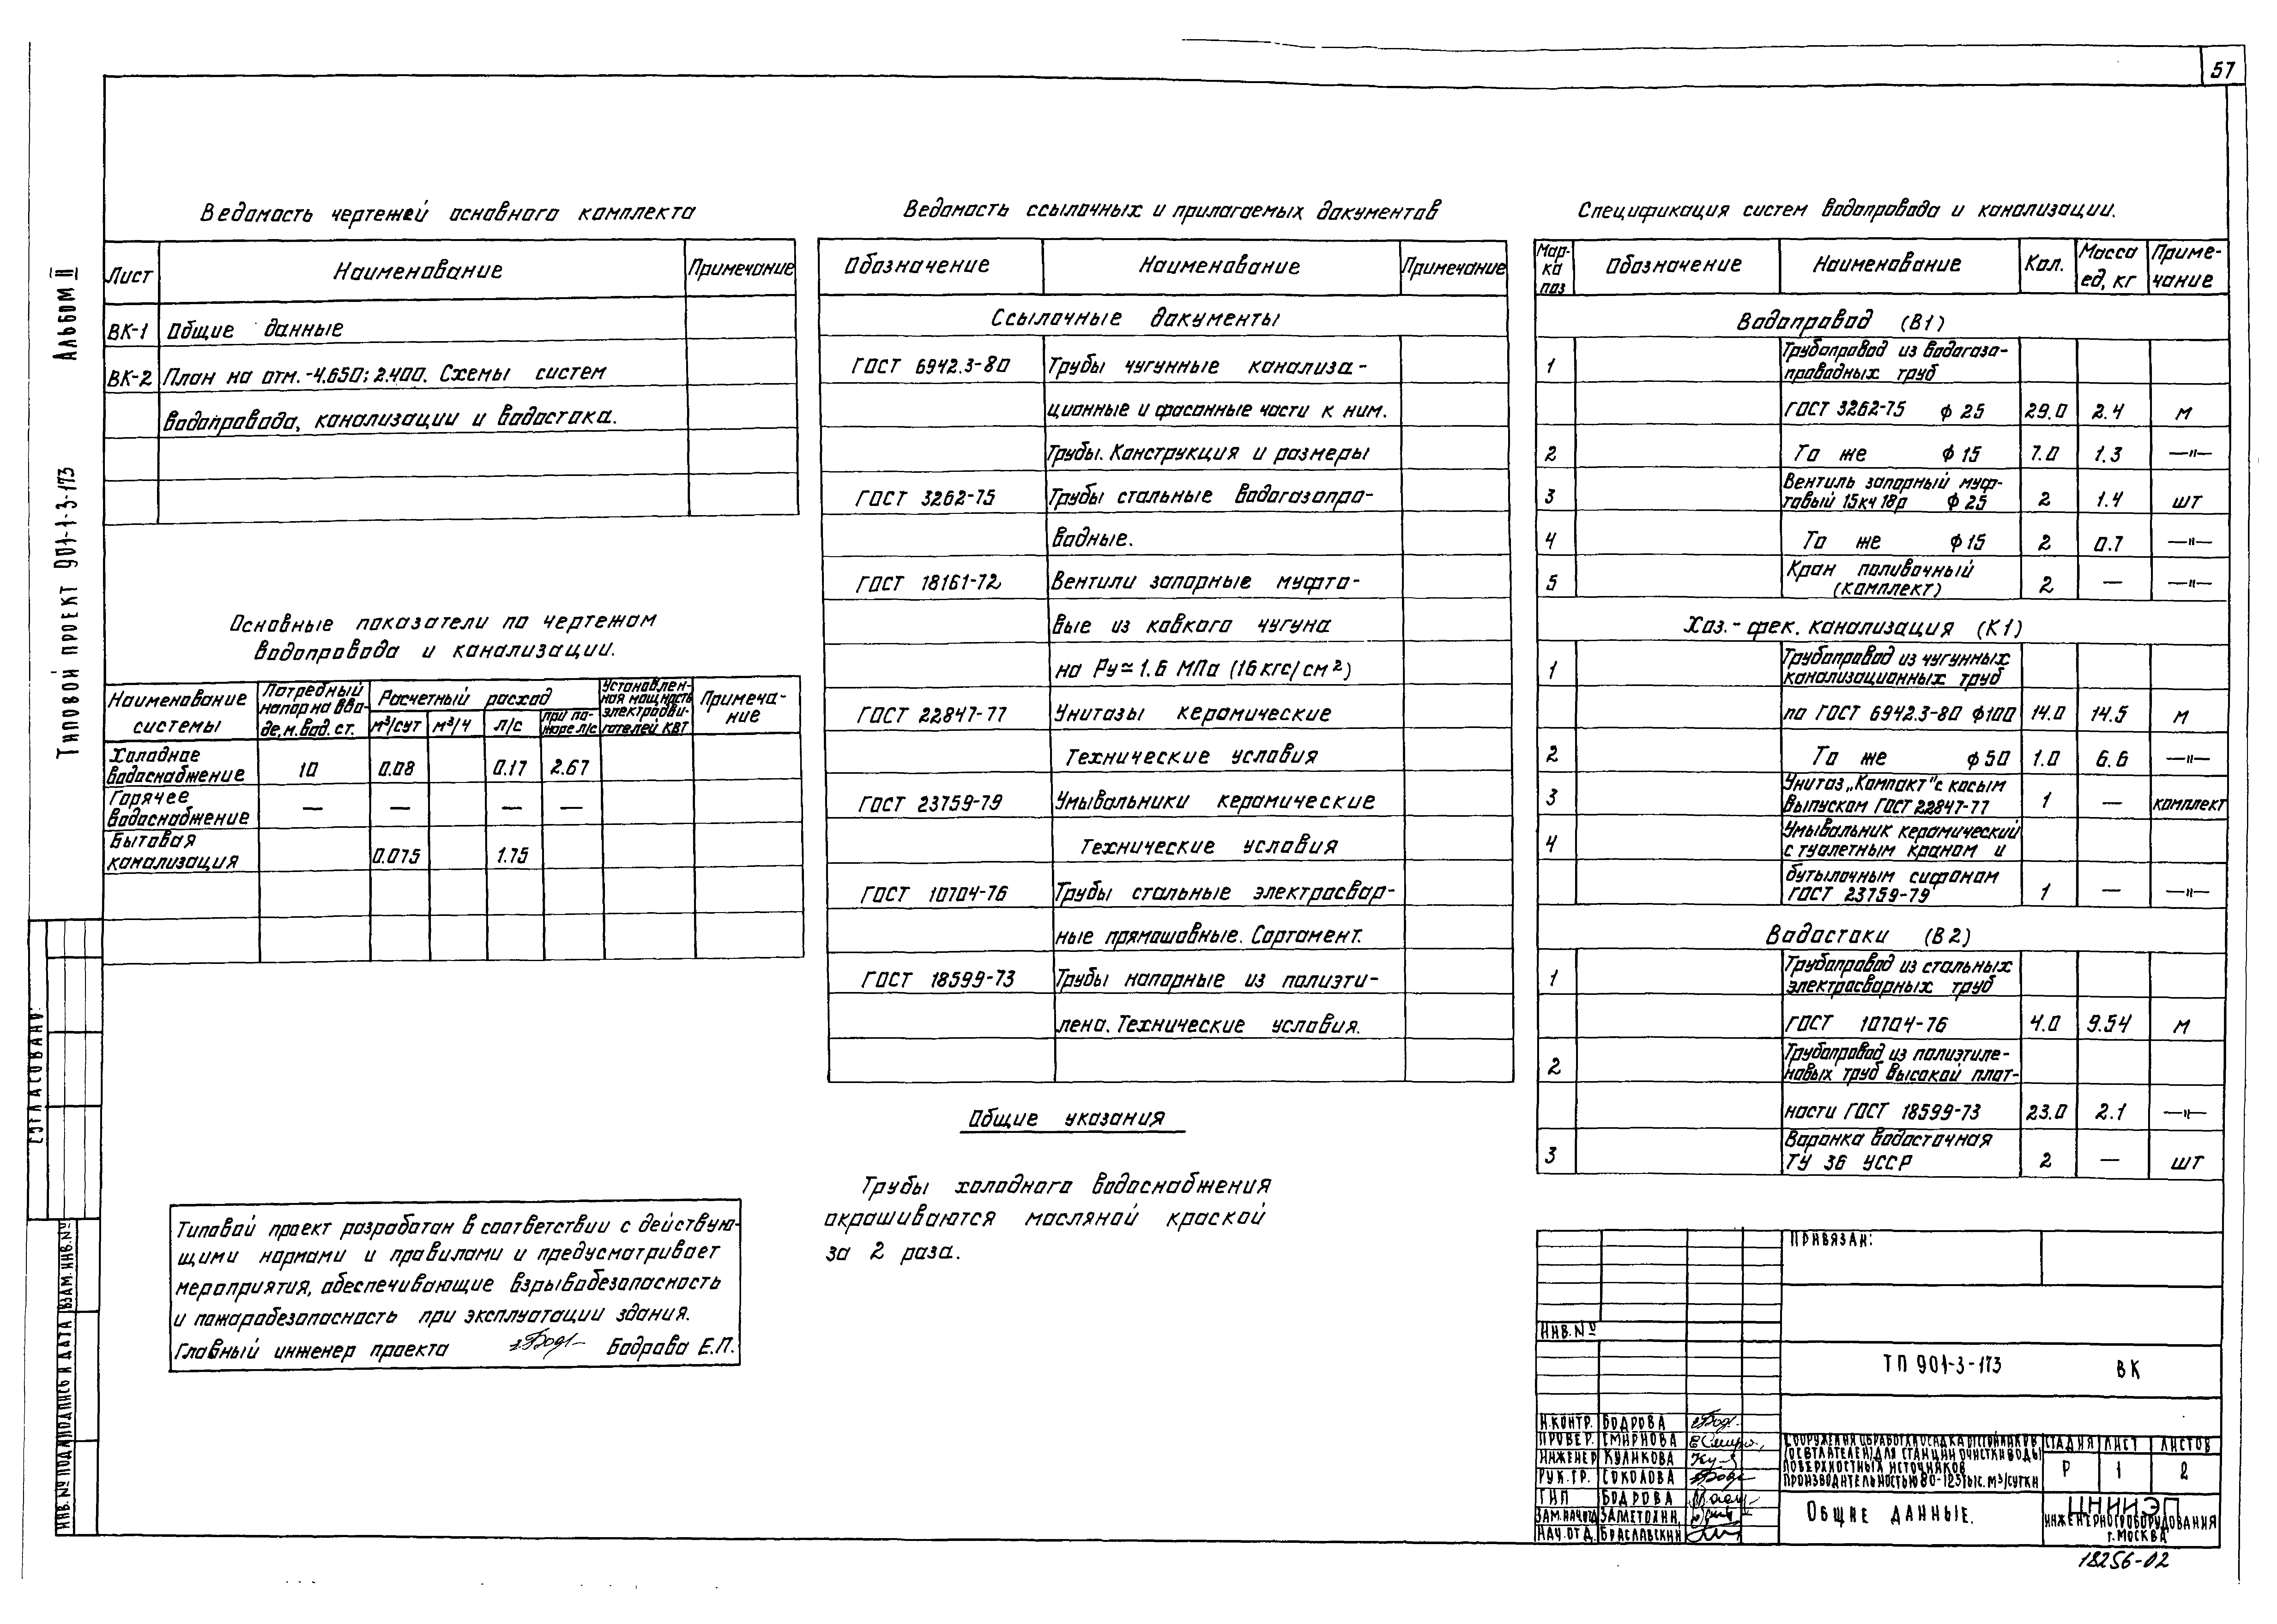 57
Альбом II
Типовой проект 901-1-3-173
Ведомость чертежей основного комплекта
Лист Наименование Примечание
ВК-1 Общие данные
ВК-2 План на отм. -4.650; 2.400. Схемы систем
водопровода, канализации и водостока.
Основные показатели по чертежам
водопровода и канализации.
Наименование системы
Потребный напор на вво-
де, м. вод. ст.
Расчетный расход
м³/сут м³/ч л/с при по-
жаре л/с
Установлен-
ная мощность
электродви-
гателей КВТ
Примеча-
ние
Холодное
водоснабжение 10 0.08 0.17 2.67
Горячее
водоснабжение — — — —
Бытовая
канализация 0.075 1.75
Типовой проект разработан в соответствии с действую-
щими нормами и правилами и предусматривает
мероприятия, обеспечивающие взрывобезопасность
и пожаробезопасность при эксплуатации здания.
Главный инженер проекта Бодрова Е.П.
Ведомость ссылочных и прилагаемых документов
Обозначение Наименование Примечание
Ссылочные документы
ГОСТ 6942.3-80 Трубы чугунные канализа-
ционные и фасонные части к ним.
Трубы. Конструкция и размеры
ГОСТ 3262-75 Трубы стальные водогазопро-
водные.
ГОСТ 18161-72 Вентили запорные муфто-
вые из ковкого чугуна
на Ру≃1.6 МПа (16 кгс/см²)
ГОСТ 22847-77 Унитазы керамические
Технические условия
ГОСТ 23759-79 Умывальники керамические
Технические условия
ГОСТ 10704-76 Трубы стальные электросвар-
ные прямошовные. Сортамент.
ГОСТ 18599-73 Трубы напорные из полиэти-
лена. Технические условия.
Общие указания
Трубы холодного водоснабжения
окрашиваются масляной краской
за 2 раза.
Спецификация систем водопровода и канализации.
Мар-
ка
поз
Обозначение Наименование Кол. Масса
ед, кг
Приме-
чание
Водопровод (В1)
1 Трубопровод из водогазо-
проводных труб
ГОСТ 3262-75 ф 25 29.0 2.4 м
2 То же ф 15 7.0 1.3 —"—
3 Вентиль запорный муф-
товый 15кч 18р ф 25 2 1.4 шт
4 То же ф 15 2 0.7 —"—
5 Кран поливочный
(комплект) 2 — —"—
Хоз.-фек. канализация (К1)
1 Трубопровод из чугунных
канализационных труб
по ГОСТ 6942.3-80 ф100 14.0 14.5 м
2 То же ф 50 1.0 6.6 —"—
3 Унитаз „Компакт" с косым
выпуском ГОСТ 22847-77 1 — комплект
4 Умывальник керамический
с туалетным краном и
бутылочным сифоном
ГОСТ 23759-79 1 — —"—
Водостоки (В2)
1 Трубопровод из стальных
электросварных труб
ГОСТ 10704-76 4.0 9.54 м
2 Трубопровод из полиэтиле-
новых труб высокой плот-
ности ГОСТ 18599-73 23.0 2.1 —"—
3 Воронка водосточная
ТУ 36 УССР 2 — шт
Привязан:
Инв.№
ТП 901-3-173 ВК
Н.контр. Бодрова
Провер. Смирнова
Инженер Куликова
Рук.гр. Соколова
ГИП Бодрова
Зам.нач.отд
Нач.отд. Браславский
Сооружения обработки осадка отстойников
(осветлителей) для станции очистки воды
поверхностных источников
производительностью 80-125 тыс. м³/сутки
Стадия Лист Листов
Р 1 2
Общие данные.
ЦНИИЭП
инженерного оборудования
г. Москва
18256-02
Согласовано:
Взам.инв.№
Подпись и дата
Инв.№ подл.